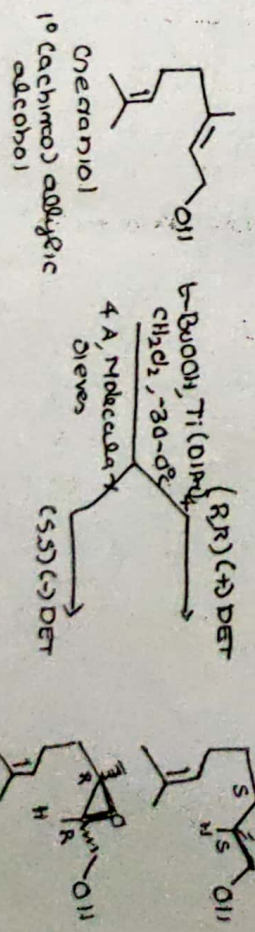 OH
Geraniol
1° (achiral) allylic
alcohol
t-BuOOH, Ti(OiPr)4
CH2Cl2, -30-0°C
4 A, Molecular
Sieves
(R,R) (+) DET
(S,S) (-) DET
S
S
OH
R
O
R
H
OH